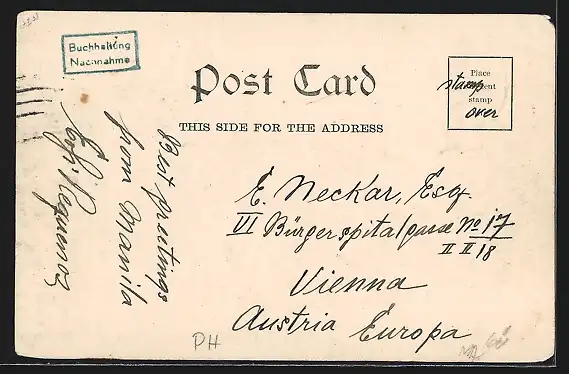 Buchhaltung
Nachnahme
Post Card
THIS SIDE FOR THE ADDRESS
Place
stamp
stamp
over
Best greetings
from Manila
E. Neckar, Esq.
VI Bürgerspitalgasse No 17
II II 18
Vienna
Austria Europa
PH